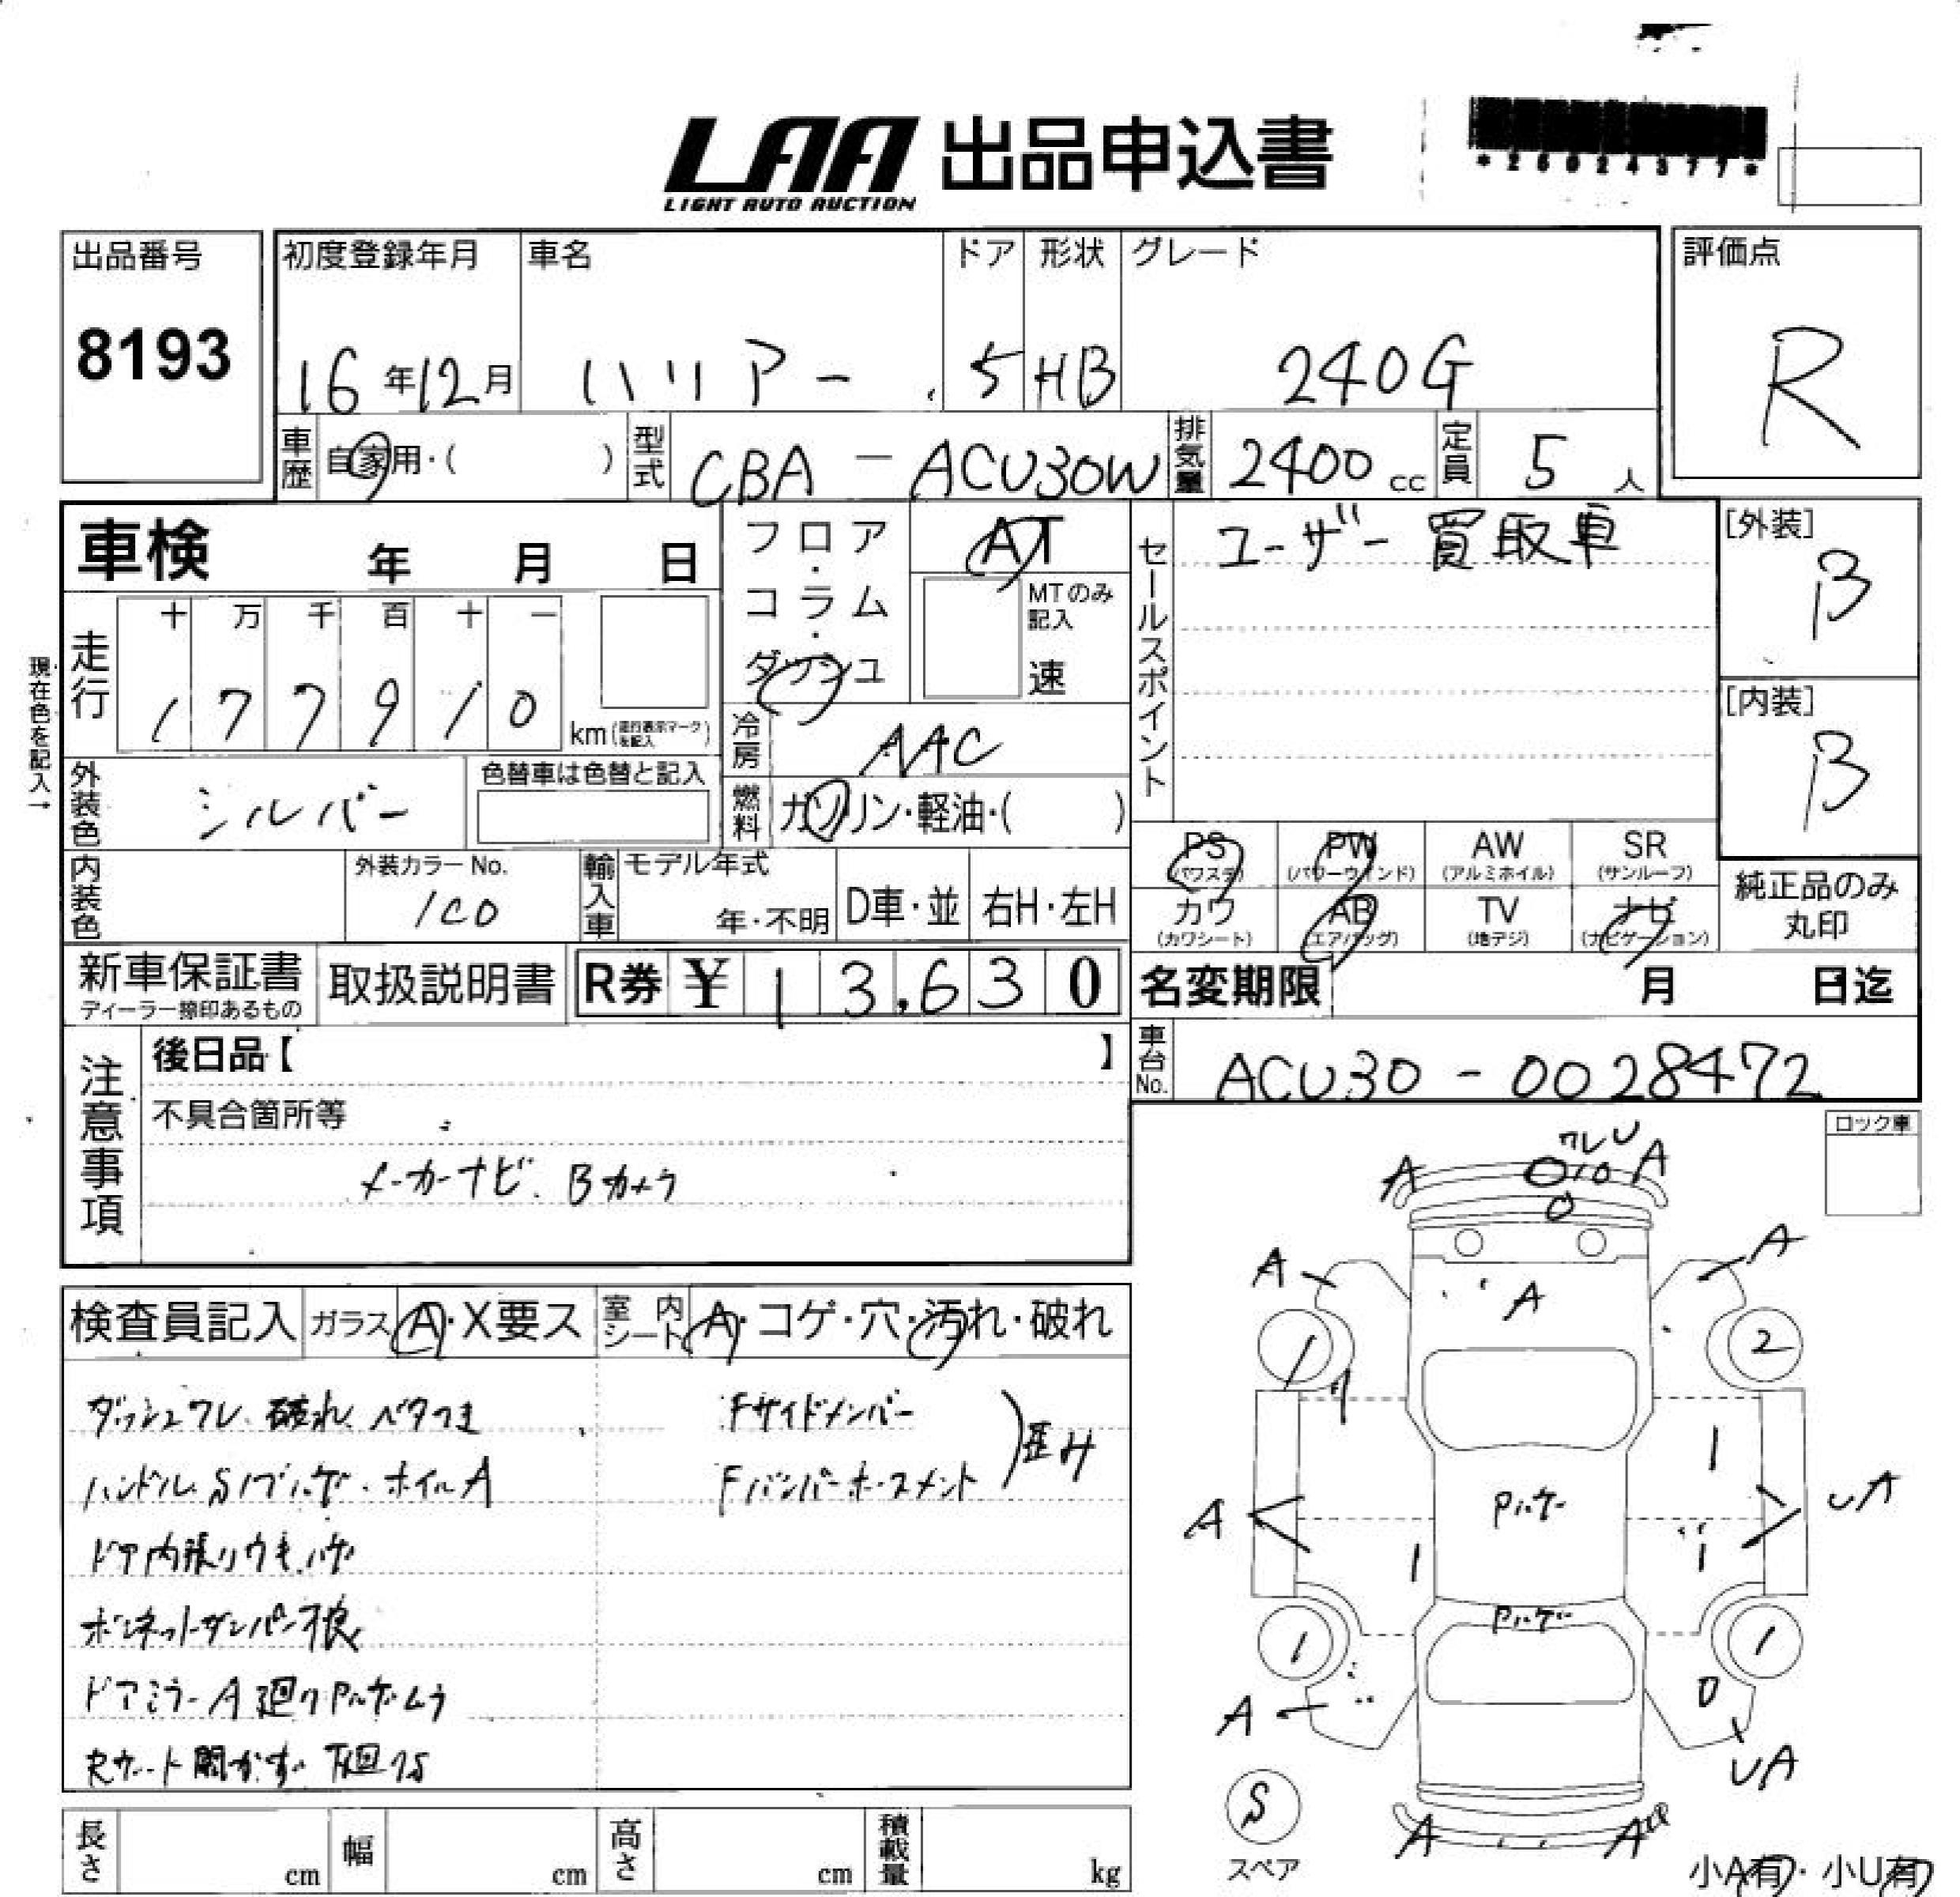 LAA 出品申込書
LIGHT AUTO AUCTION
*26024377*
出品番号
8193
初度登録年月
16年12月
車名
ハリアー
ドア
5
形状
HB
グレード
240G
評価点
R
車歴
自家用・( )
型式
CBA - ACU30W
排気量
2400 cc
定員
5 人
車検 年 月 日
現在色を記入→
走行
十 万 千 百 十 一
1 7 7 9 1 0
km (走行表示マークを記入)
フロア・コラム・ダッシュ
AT
MTのみ記入
速
冷房
AAC
燃料
ガソリン・軽油・( )
セールスポイント
ユーザー買取車
[外装]
B
[内装]
B
外装色
シルバー
色替車は色替と記入
内装色
外装カラーNo.
1C0
輸入車
モデル年式
年・不明
D車・並
右H・左H
PS
(パワステ)
PW
(パワーウインド)
AW
(アルミホイル)
SR
(サンルーフ)
カワ
(カワシート)
AB
(エアバッグ)
TV
(地デジ)
ナビ
(ナビゲーション)
純正品のみ
丸印
新車保証書
ディーラー捺印あるもの
取扱説明書
R券 ¥ 13,630
名変期限 月 日迄
車台No.
ACU30 - 0028472
注意事項
後日品【 】
不具合箇所等
メーカーナビ. Bカメラ
ロック車
検査員記入
ガラス A・X要ス
室内シート A・コゲ・穴・汚れ・破れ
ダッシュワレ、破れ、ベタつき
ハンドル、S/ブハゲ・ホイルA
ドア内張りウキ、ハゲ
ボンネットダンパー不良
ドアミラーA 廻りPハゲ・ムラ
Rゲート開かず 下回りS
Fサイドメンバー
Fバンパーホースメント
)歪み
ワレ U
A
A
A
A
A
1
2
1
Pハゲ
A
UA
1
1
Pハゲ
1
1
A
UA
S
スペア
A
A
小A有・小U有
長さ cm
幅 cm
高さ cm
積載量 kg